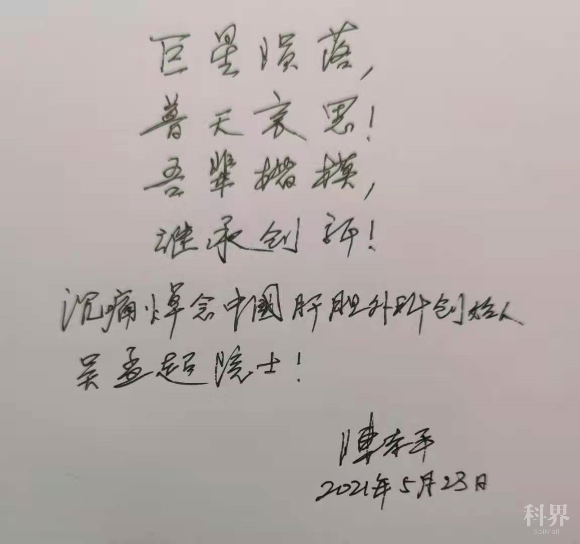 巨星陨落，
普天哀思！
吾辈楷模，
继承创新！
沉痛悼念中國肝胆外科创始人
吴孟超院士！
陳孝平
2021年5月23日
科界